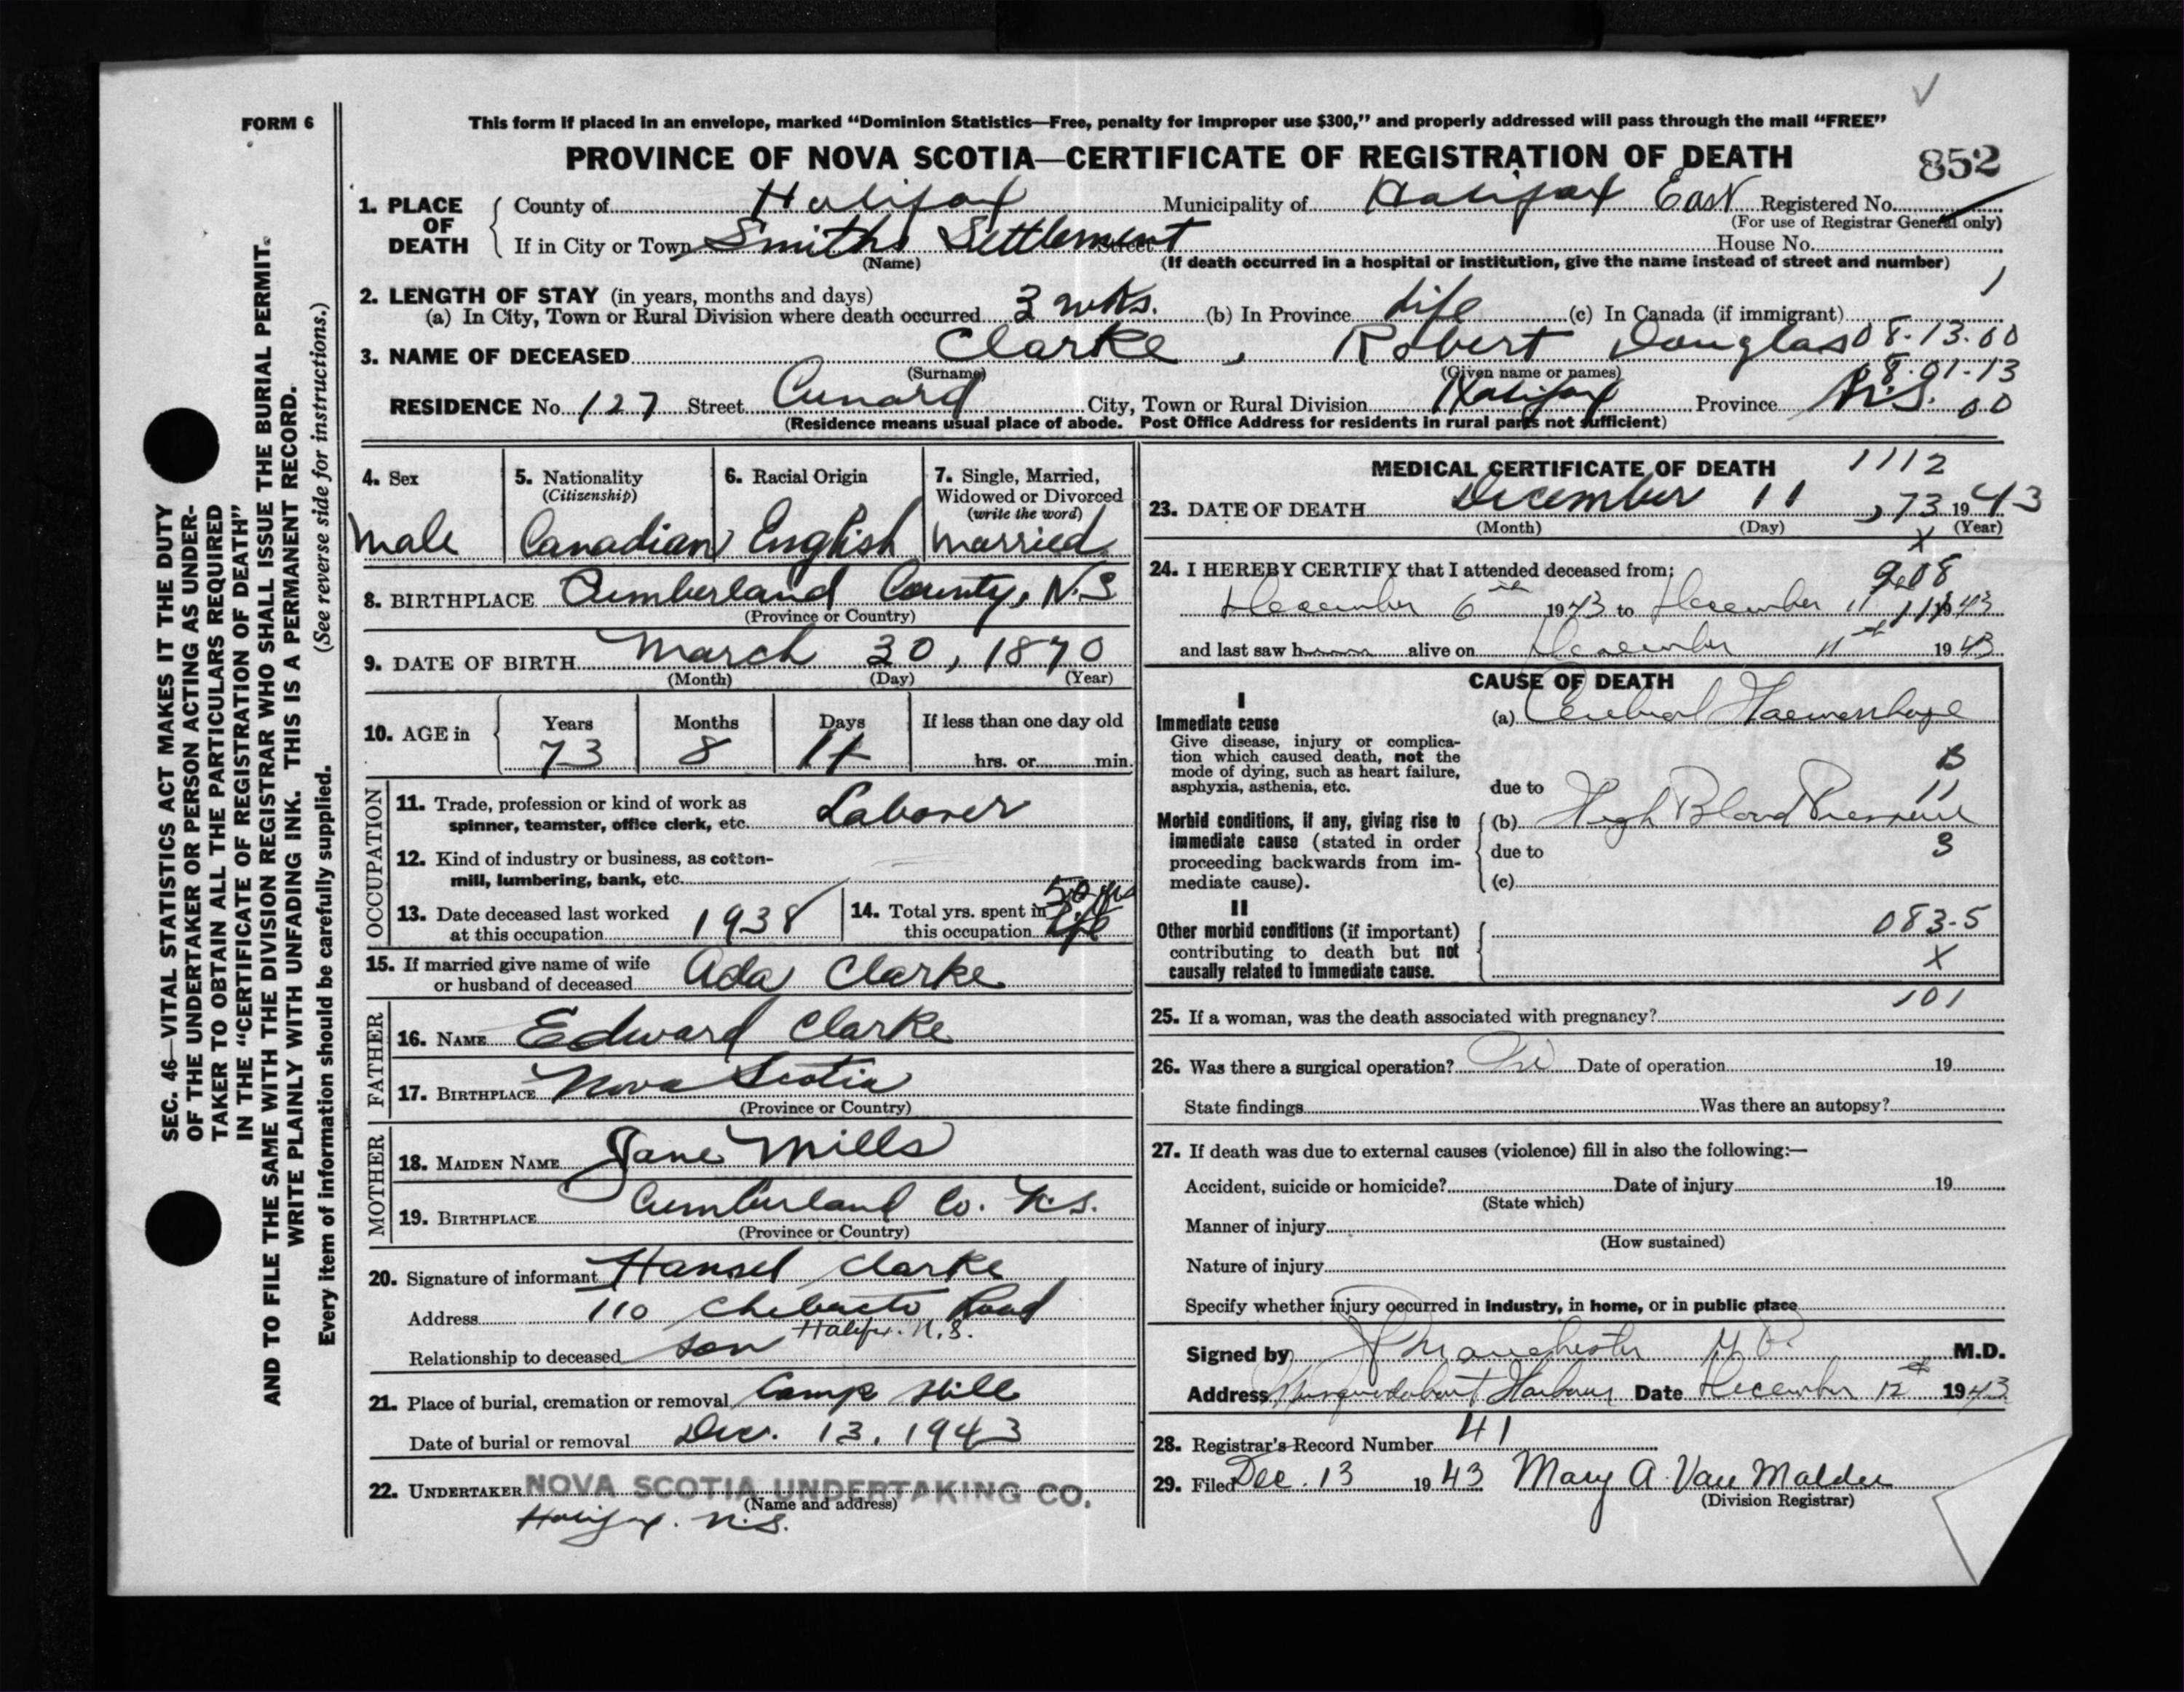 FORM 6
This form if placed in an envelope, marked “Dominion Statistics—Free, penalty for improper use $300,” and properly addressed will pass through the mail “FREE”
PROVINCE OF NOVA SCOTIA—CERTIFICATE OF REGISTRATION OF DEATH 852
1. PLACE OF DEATH County of Halifax Municipality of Halifax East Registered No.
(For use of Registrar General only)
If in City or Town Smiths Settlement Street House No.
(Name) (If death occurred in a hospital or institution, give the name instead of street and number)
2. LENGTH OF STAY (in years, months and days) 1
(a) In City, Town or Rural Division where death occurred 3 wks. (b) In Province Life (c) In Canada (if immigrant)
3. NAME OF DECEASED Clarke, Robert Douglas 08.13.00
(Surname) (Given name or names) 08.01-13
RESIDENCE No. 127 Street Cunard City, Town or Rural Division Halifax Province N.S. 00
(Residence means usual place of abode. Post Office Address for residents in rural parts not sufficient)
4. Sex
male
5. Nationality
(Citizenship)
Canadian
6. Racial Origin
English
7. Single, Married,
Widowed or Divorced
(write the word)
Married
8. BIRTHPLACE Cumberland County, N.S
(Province or Country)
9. DATE OF BIRTH March 30, 1870
(Month) (Day) (Year)
10. AGE in Years Months Days If less than one day old
73 8 1+ hrs. or min.
OCCUPATION
11. Trade, profession or kind of work as
spinner, teamster, office clerk, etc. Laborer
12. Kind of industry or business, as cotton-
mill, lumbering, bank, etc.
13. Date deceased last worked
at this occupation 1938
14. Total yrs. spent in 50 yrs
this occupation Life
15. If married give name of wife
or husband of deceased Ada Clarke
FATHER
16. NAME Edward Clarke
17. BIRTHPLACE Nova Scotia
(Province or Country)
MOTHER
18. MAIDEN NAME Jane Mills
19. BIRTHPLACE Cumberland Co. N.S.
(Province or Country)
20. Signature of informant Hansel Clarke
Address 110 Chebucto Road
Halifax. N.S.
Relationship to deceased son
21. Place of burial, cremation or removal Camp Hill
Date of burial or removal Dec. 13, 1943
22. UNDERTAKER NOVA SCOTIA UNDERTAKING CO.
(Name and address)
Halifax. N.S.
MEDICAL CERTIFICATE OF DEATH 1112
23. DATE OF DEATH December 11, 73 1943
(Month) (Day) (Year)
X
24. I HEREBY CERTIFY that I attended deceased from: 908
December 6th 1943 to December 11 1943
and last saw h alive on December 11th 1943
CAUSE OF DEATH
I
Immediate cause (a) Cerebral Haemorrhage
Give disease, injury or complica-
tion which caused death, not the
mode of dying, such as heart failure,
asphyxia, asthenia, etc.
B
due to 11
Morbid conditions, if any, giving rise to
immediate cause (stated in order
proceeding backwards from im-
mediate cause).
(b) High Blood Pressure
due to 3
(c)
II
Other morbid conditions (if important)
contributing to death but not
causally related to immediate cause.
083-5
X
101
25. If a woman, was the death associated with pregnancy?
26. Was there a surgical operation? No Date of operation 19
State findings Was there an autopsy?
27. If death was due to external causes (violence) fill in also the following:—
Accident, suicide or homicide? Date of injury 19
(State which)
Manner of injury
(How sustained)
Nature of injury
Specify whether injury occurred in industry, in home, or in public place
Signed by Manchester M.D.
Address Musquodoboit Harbour Date December 12th 1943
28. Registrar's Record Number 41
29. Filed Dec. 13 1943 Mary A. Van Malder
(Division Registrar)
SEC. 46—VITAL STATISTICS ACT MAKES IT THE DUTY
OF THE UNDERTAKER OR PERSON ACTING AS UNDER-
TAKER TO OBTAIN ALL THE PARTICULARS REQUIRED
IN THE “CERTIFICATE OF REGISTRATION OF DEATH”
AND TO FILE THE SAME WITH THE DIVISION REGISTRAR WHO SHALL ISSUE THE BURIAL PERMIT.
WRITE PLAINLY WITH UNFADING INK. THIS IS A PERMANENT RECORD.
Every item of information should be carefully supplied. (See reverse side for instructions.)